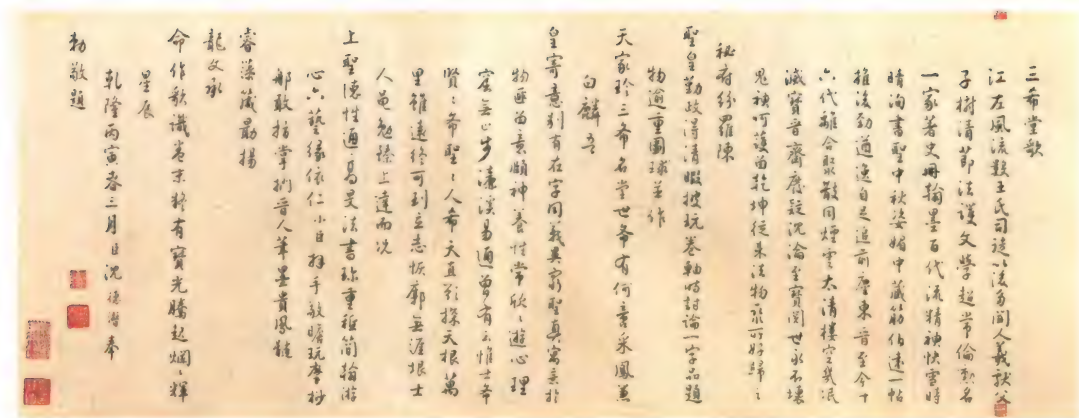 三希堂歌
江左風流數王氏司徒以後多聞人羲獻父
子樹清節法護文學超常倫勳名
一家著史冊翰墨百代流精神快雪時
晴洵書聖中秋姿媚中藏筋伯遠一帖
推後勁遒逸自足追前塵東晉至今十
六代離合聚散同煙雲太清樓空幾泯
滅寶晉齋廢疑沈淪至寶閱世永不壞
鬼神呵護留乾坤從來法物聚所好歸之
秘府紛羅陳
聖皇勤政得清暇披玩卷軸時討論一字品題
物逾重圖球並作
天家珍三希名堂世希有何啻采鳳兼
白麟吾
皇寄意別有在字同義異窮聖真寓意於
物匪留意頤神養性常欣欣遊心理
窟無止步濂溪易通曾有云惟士希
賢賢希聖聖人希天直欲探天根萬
里雖遠終可到立志恢廓無涯垠士
人黽勉臻上達而況
上聖德性通高旻法書珍重雅簡翰游
心六藝緣依仁小臣拜手敬瞻玩摩抄
那敢指掌捫晉人筆墨貴風髓
睿藻藏勗揚
龍文承
命作歌識卷末將有寶光騰起爛爛輝
星辰
乾隆丙寅春三月臣沈德潛奉
勅敬題